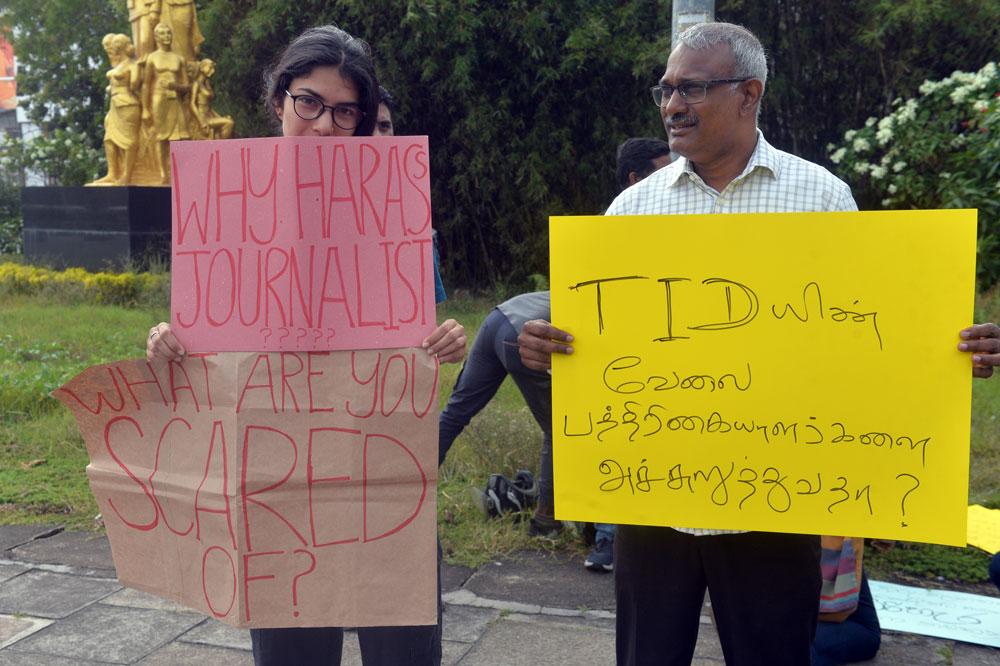 WHY HARASS
JOURNALIST
?????
WHAT ARE YOU
SCARED
OF?
TID யின்
வேலை
பத்திரிகையாளர்களை
அச்சுறுத்துவதா?